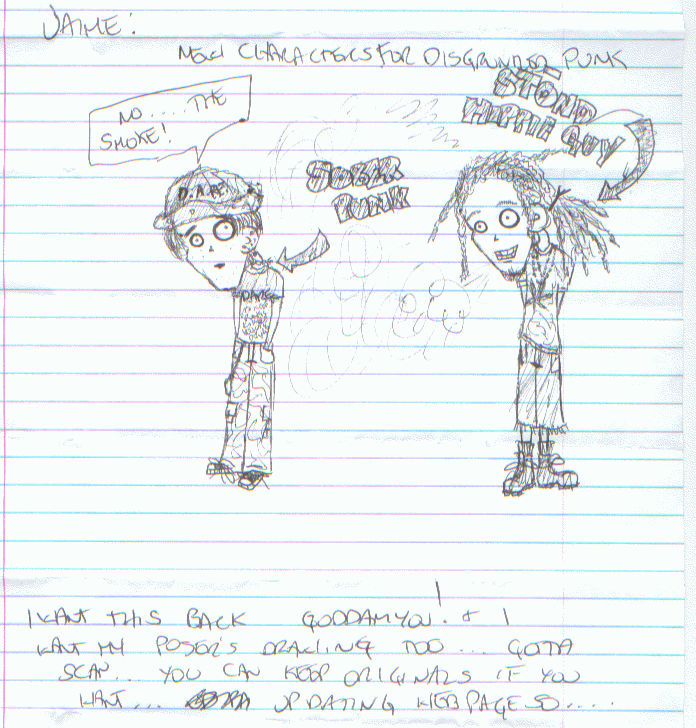 JAIME:
NEW CHARACTERS FOR DISGRUNTLED PUNK
NO.....THE
SMOKE!
STOND
HIPPIE GUY
SOBER
PUNK
D.A.RE
DARE
I WANT THIS BACK GODDAMYOU! & I
WANT MY POSER'S DRAWING TOO... GOTTA
SCAN... YOU CAN KEEP ORIGINALS IF YOU
WANT... UPDATING WEBPAGE SO.....